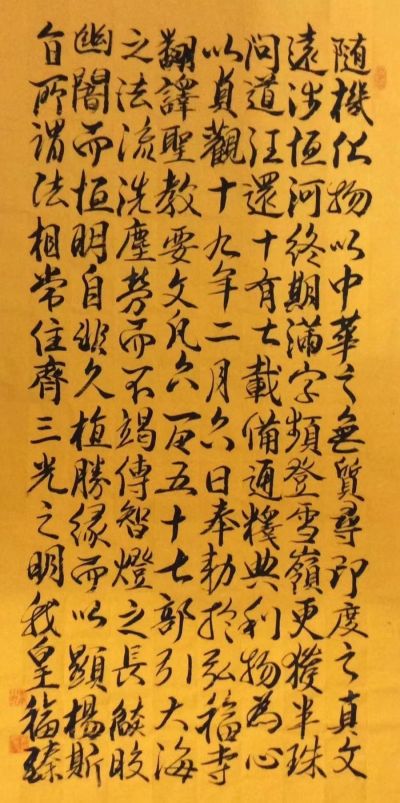 隨機化物以中華之無質尋印度之真文
遠涉恒河終期滿字頻登雪嶺更獲半珠
問道往還十有七載備通釋典利物為心
以貞觀十九年二月六日奉勅於弘福寺
翻譯聖教要文凡六百五十七部引大海
之法流洗塵勞而不竭傳智燈之長燄皎
幽闇而恒明自非久植勝緣而以顯楊斯
旨所謂法相常住齊三光之明我皇福臻